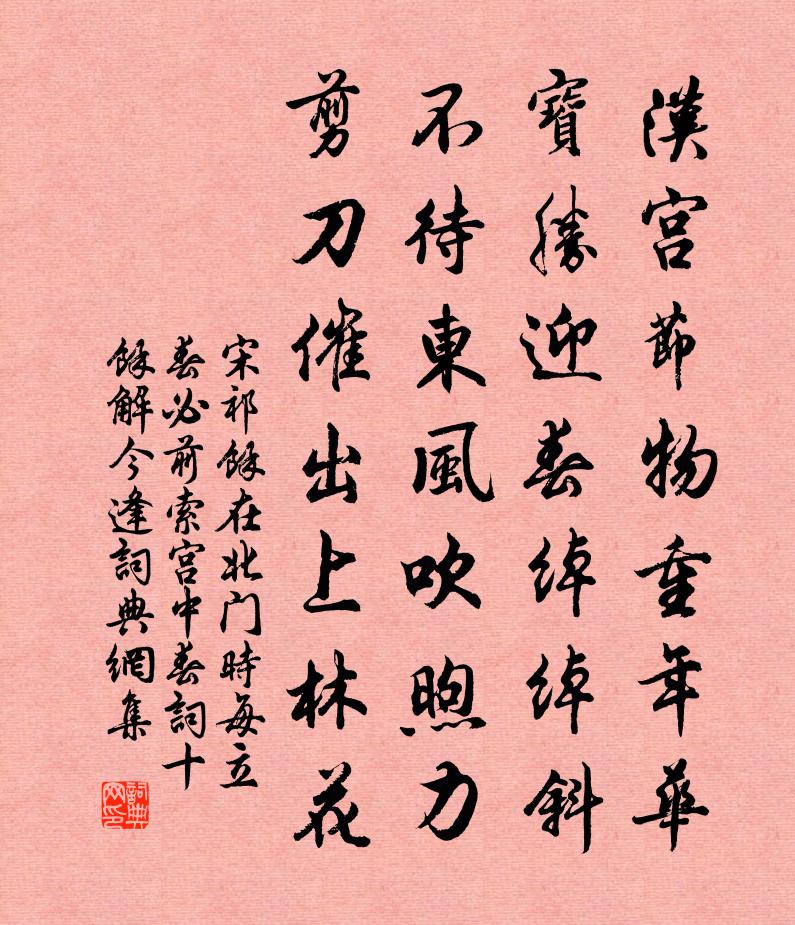 漢宮節物重年華
寶勝迎春綽綽斜
不待東風吹煦力
剪刀催出上林花
宋祁餘在北門時每立
春必前索宮中春詞十
餘解今逢詞典網集
詞典網印